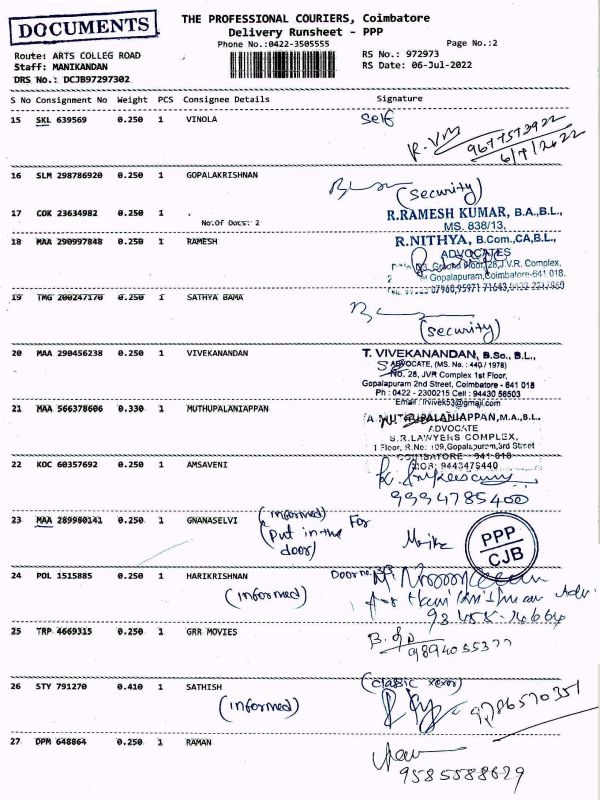 DOCUMENTS
THE PROFESSIONAL COURIERS, Coimbatore
Delivery Runsheet - PPP
Phone No.:0422-3505555
Page No.:2
Route: ARTS COLLEG ROAD
Staff: MANIKANDAN
DRS No.: DCJB97297302
RS No.: 972973
RS Date: 06-Jul-2022
S No Consignment No Weight PCS Consignee Details Signature
15 SKL 639569 0.250 1 VINOLA self
9677573922
6/7/2022
16 SLM 298786920 0.250 1 GOPALAKRISHNAN
(security)
17 COK 23634982 0.250 1 .
No.Of Docs: 2
R.RAMESH KUMAR, B.A.,B.L.,
MS. 838/13,
18 MAA 290997848 0.250 1 RAMESH
R.NITHYA, B.Com.,CA,B.L.,
ADVOCATES
J.V.R. Complex,
Gopalapuram, Coimbatore-641 018.
19 TMG 200247170 0.250 1 SATHYA BAMA
(security)
20 MAA 290456238 0.250 1 VIVEKANANDAN
T. VIVEKANANDAN, B.Sc., B.L.,
ADVOCATE, (MS. No.: 440 / 1978)
No. 28, JVR Complex 1st Floor,
Gopalapuram 2nd Street, Coimbatore - 641 018
Ph : 0422 - 2300215 Cell : 94430 56503
21 MAA 566378606 0.330 1 MUTHUPALANIAPPAN
A. MUTHUPALANIAPPAN, M.A., B.L.
ADVOCATE
S.R.LAWYERS COMPLEX,
1 Floor, R.No: 109, Gopalapuram, 3rd Street
COIMBATORE - 641 018
MOB: 9443475440
22 KOC 60357692 0.250 1 AMSAVENI
9994785400
23 MAA 289980141 0.250 1 GNANASELVI
(informed)
(Put in the door) For
PPP
CJB
24 POL 1515885 0.250 1 HARIKRISHNAN
(informed)
Door no.
25 TRP 4669315 0.250 1 GRR MOVIES
26 STY 791270 0.410 1 SATHISH
(informed)
(classic xerox)
9786570351
27 DPM 648864 0.250 1 RAMAN
9585588629